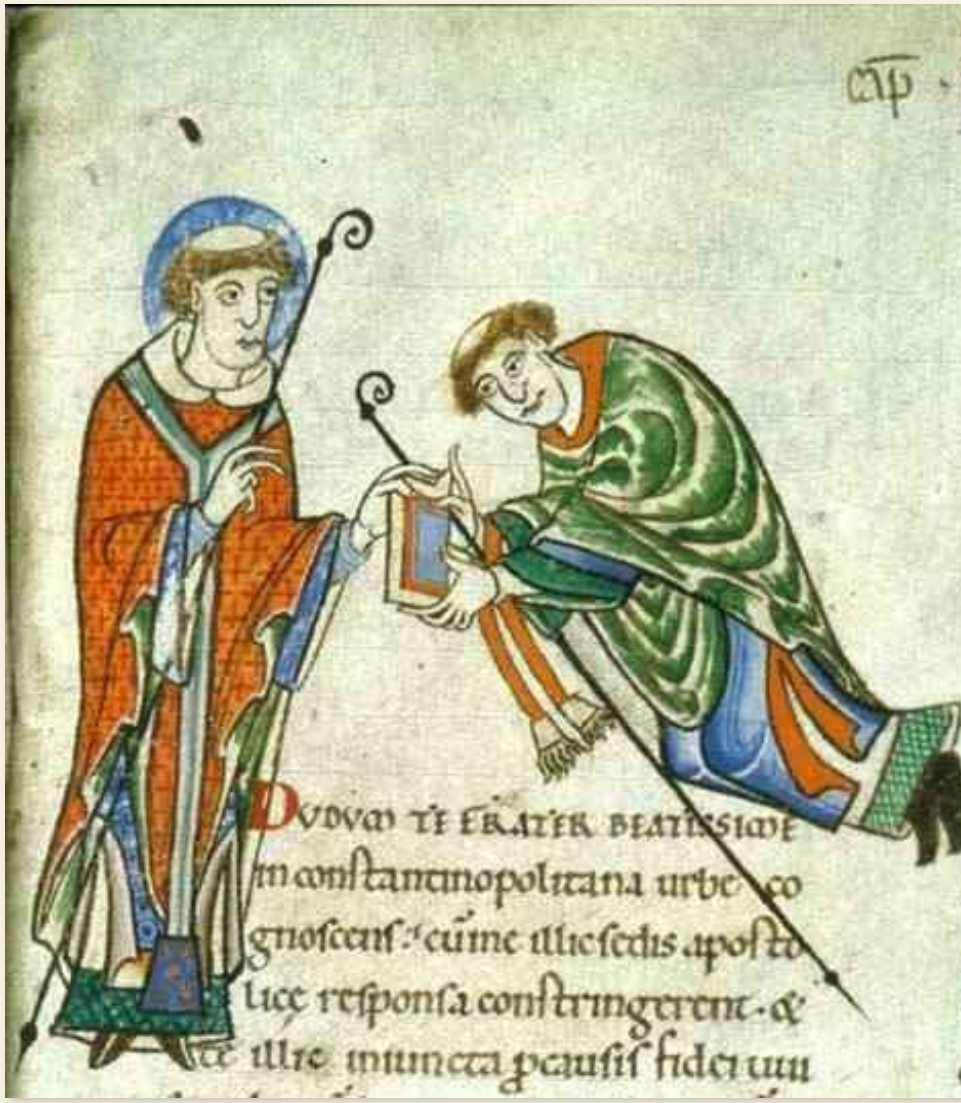 cap̄ ·
DUDUM TE FRATER BEATISSIME
in constantinopolitana urbe co
gnoscens. cū me illic sedis aposto
lice responsa constringerent · &
te illic iniuncta ꝑ causis fidei uui